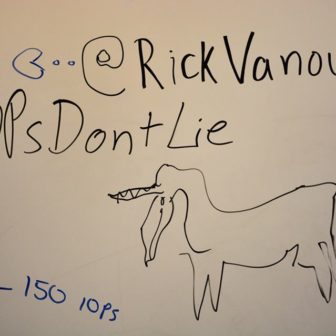 @RickVanov
PsDontLie
150 IOPs